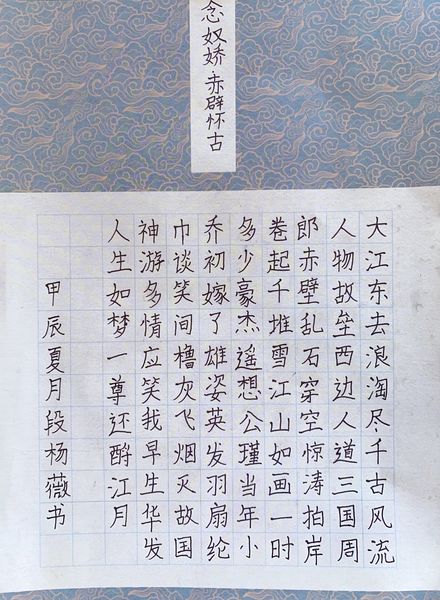 念奴娇·赤辟怀古
大江东去浪淘尽千古风流
人物故垒西边人道三国周
郎赤壁乱石穿空惊涛拍岸
卷起千堆雪江山如画一时
多少豪杰遥想公瑾当年小
乔初嫁了雄姿英发羽扇纶
巾谈笑间橹灰飞烟灭故国
神游多情应笑我早生华发
人生如梦一尊还酹江月
甲辰夏月段杨薇书